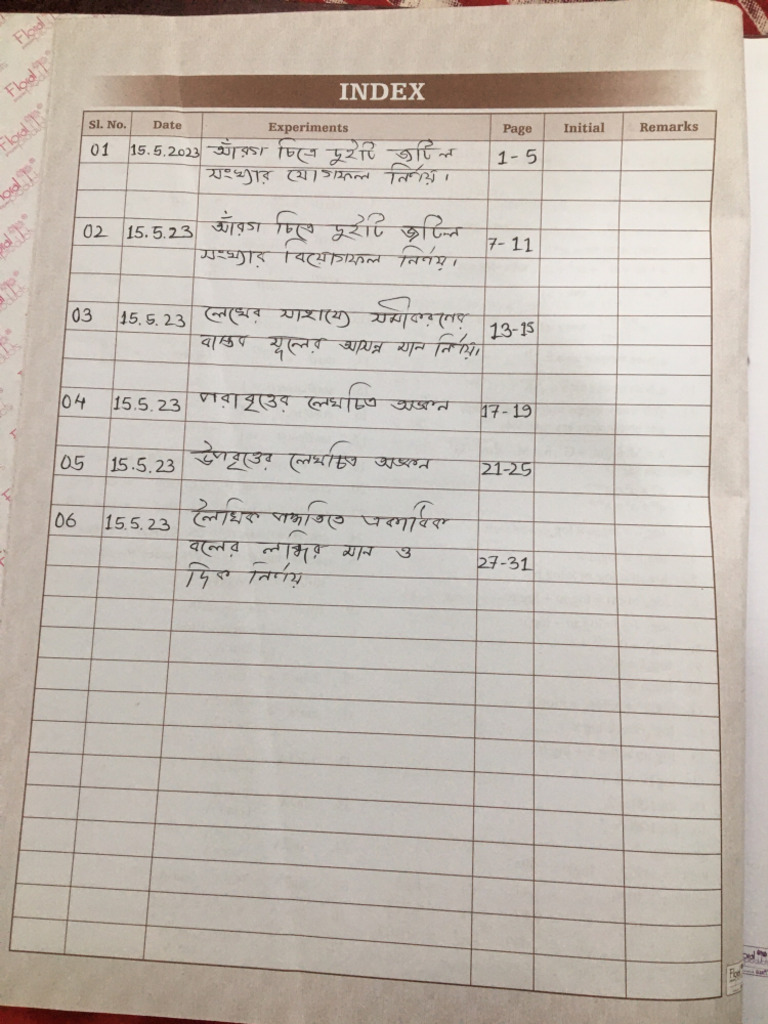 INDEX
Sl. No. Date Experiments Page Initial Remarks
01 15.5.2023 আঁরগা চিত্রে দুইটি জটিল 1-5
সংখ্যার যোগফল নির্ণয়।
02 15.5.23 আঁরগা চিত্রে দুইটি জটিল 7-11
সংখ্যার বিয়োগফল নির্ণয়।
03 15.5.23 লেখের সাহায্যে সমীকরণের 13-15
বাস্তব মূলের আসন্ন মান নির্ণয়।
04 15.5.23 পরাবৃত্তের লেখচিত্র অঙ্কন 17-19
05 15.5.23 উপবৃত্তের লেখচিত্র অঙ্কন 21-25
06 15.5.23 লৈখিক পদ্ধতিতে একাধিক
বলের লব্ধির মান ও 27-31
দিক নির্ণয়
Floral